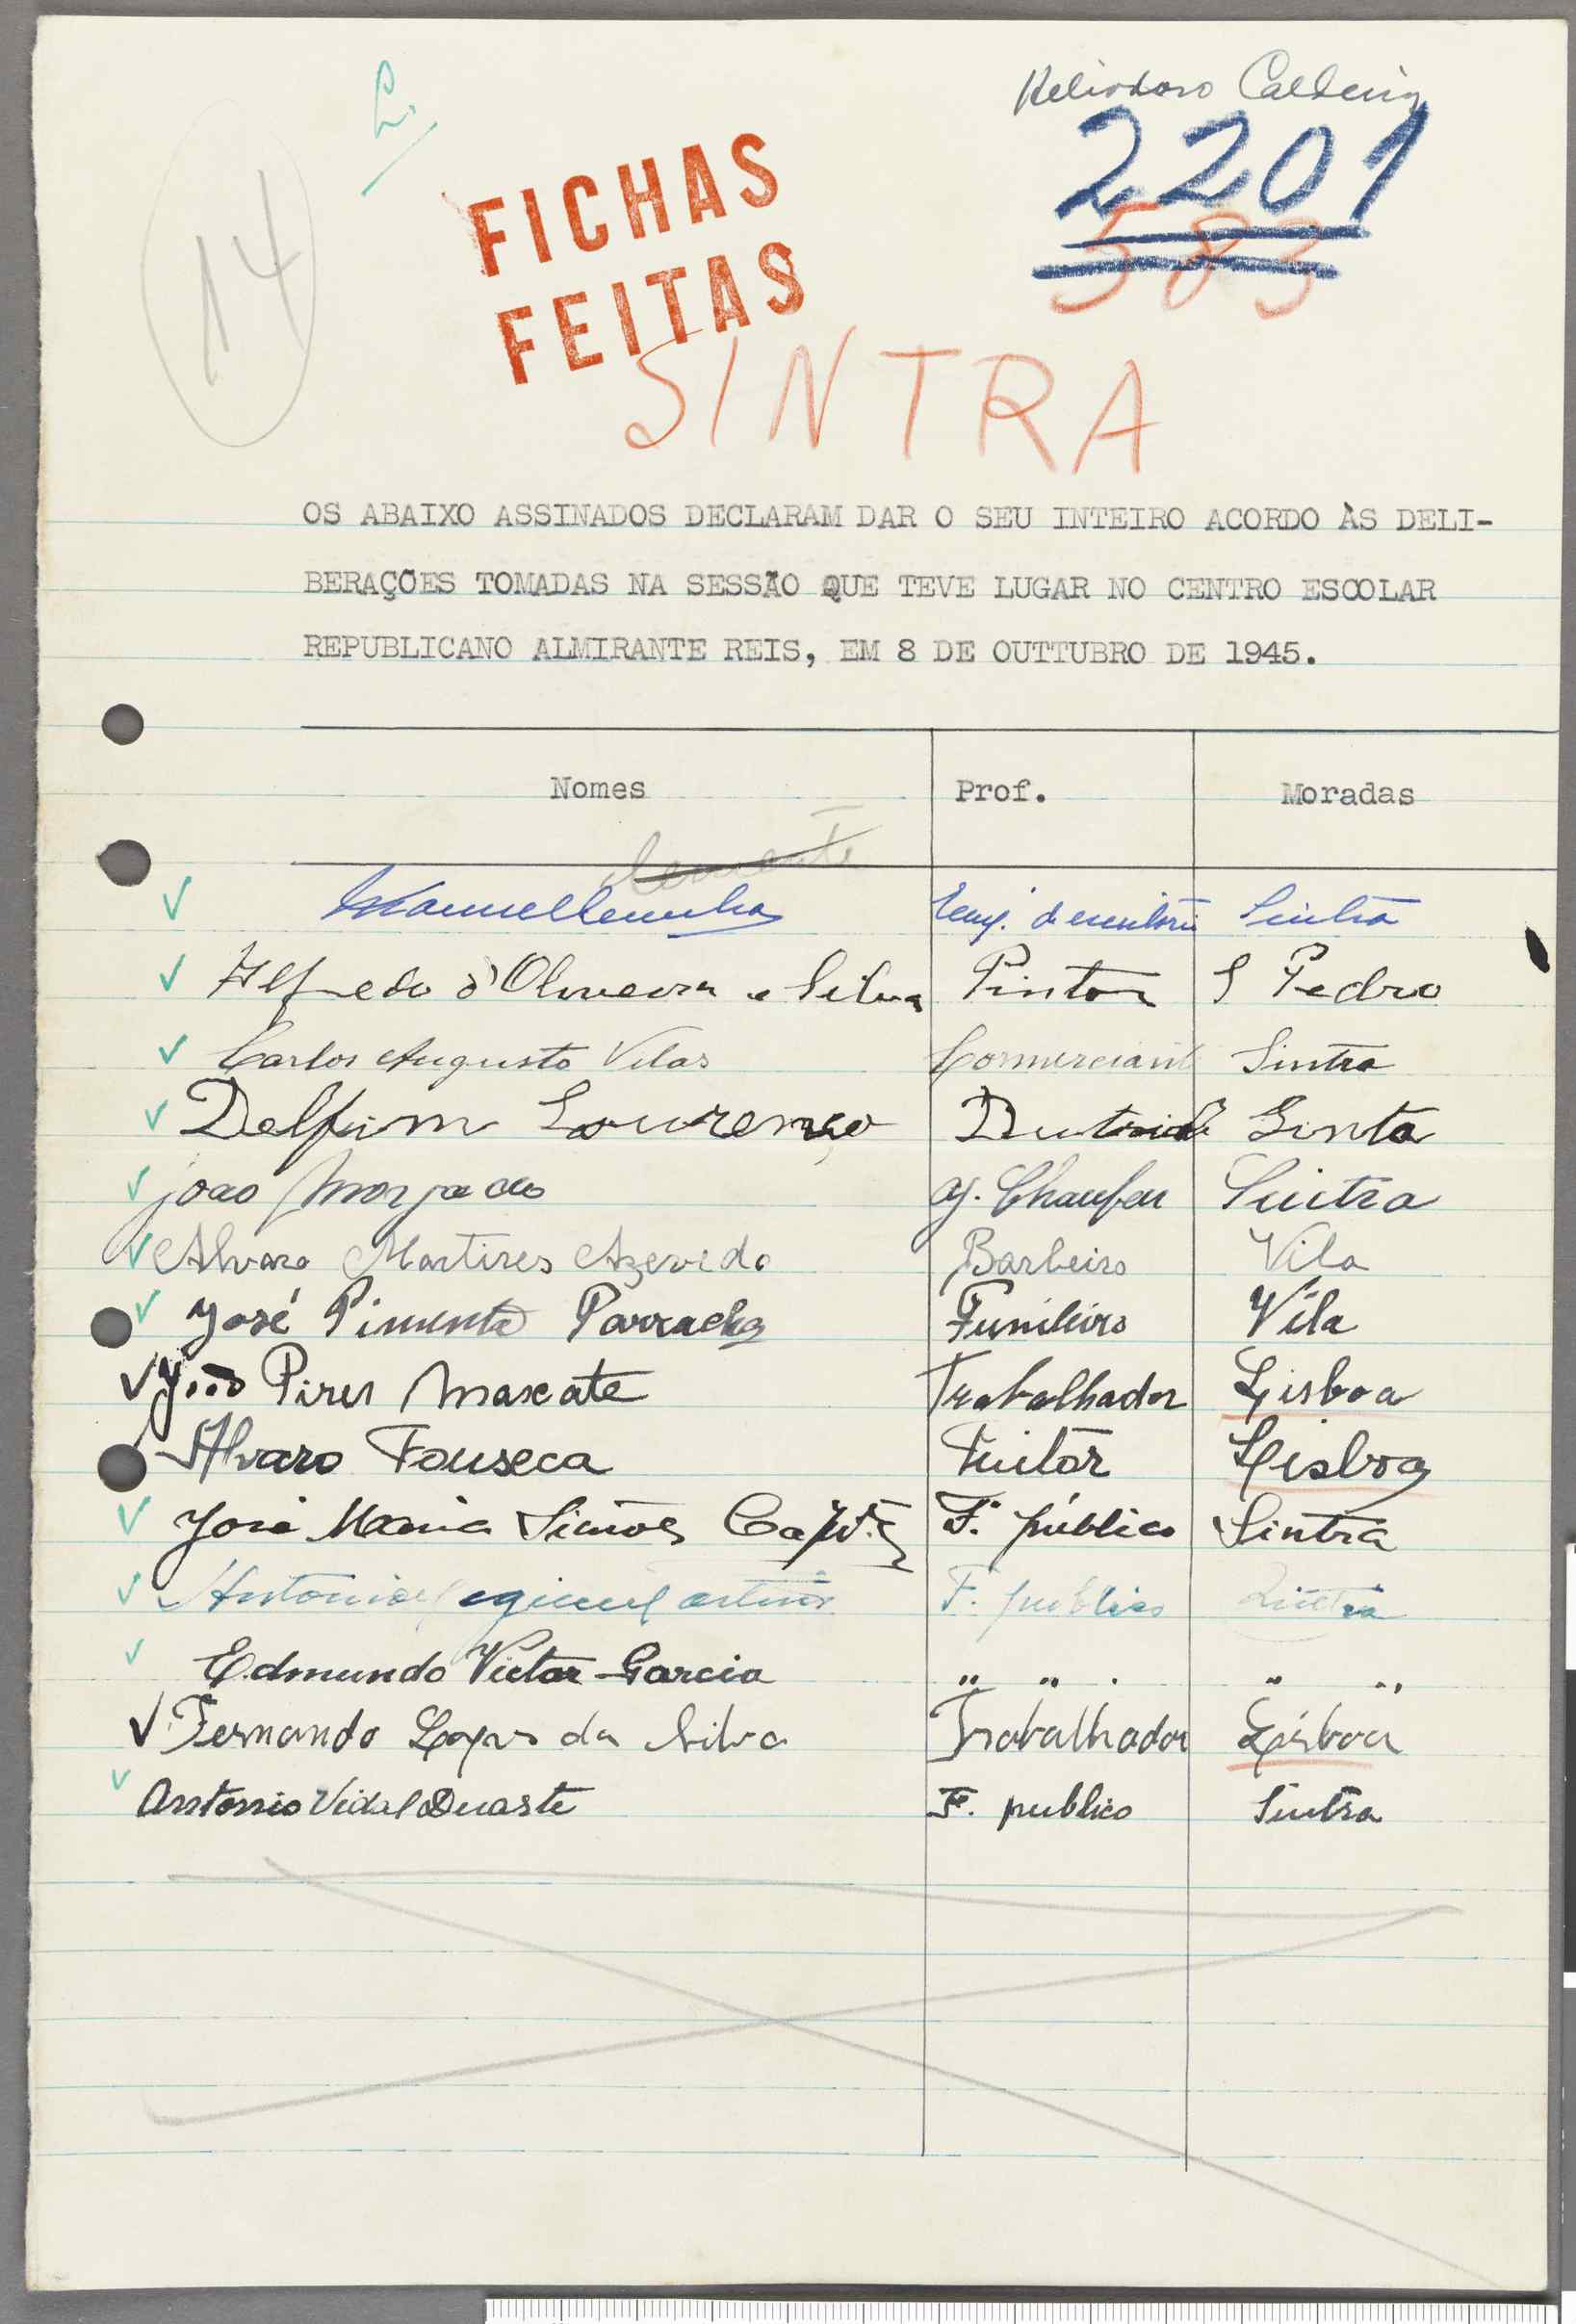 Heliodoro Caldeira
2201
583
14
FICHAS
FEITAS
SINTRA
OS ABAIXO ASSINADOS DECLARAM DAR O SEU INTEIRO ACORDO ÀS DELI-
BERAÇÕES TOMADAS NA SESSÃO QUE TEVE LUGAR NO CENTRO ESCOLAR
REPUBLICANO ALMIRANTE REIS, EM 8 DE OUTTUBRO DE 1945.
Nomes Prof. Moradas
Manuel Sintra
Alfredo d'Oliveira e Silva Pintor S Pedro
Carlos Augusto Vilar Commerciante Sintra
Delfim Lourenço
João Morgado aj. Chaufeu Sintra
Alvaro Martires Azevedo Barbeiro Vila
José Pimenta Parracho Funileiro Vila
João Pires Mascate Trabalhador Lisboa
Alvaro Fonseca Lisboa
José Maria Simões F. público Sintra
Antonio F. publico Sintra
Edmundo Victor Garcia " " . " "
Fernando Lopes da Silva Trabalhador Lisboa
Antonio Vidal Duarte F. publico Sintra